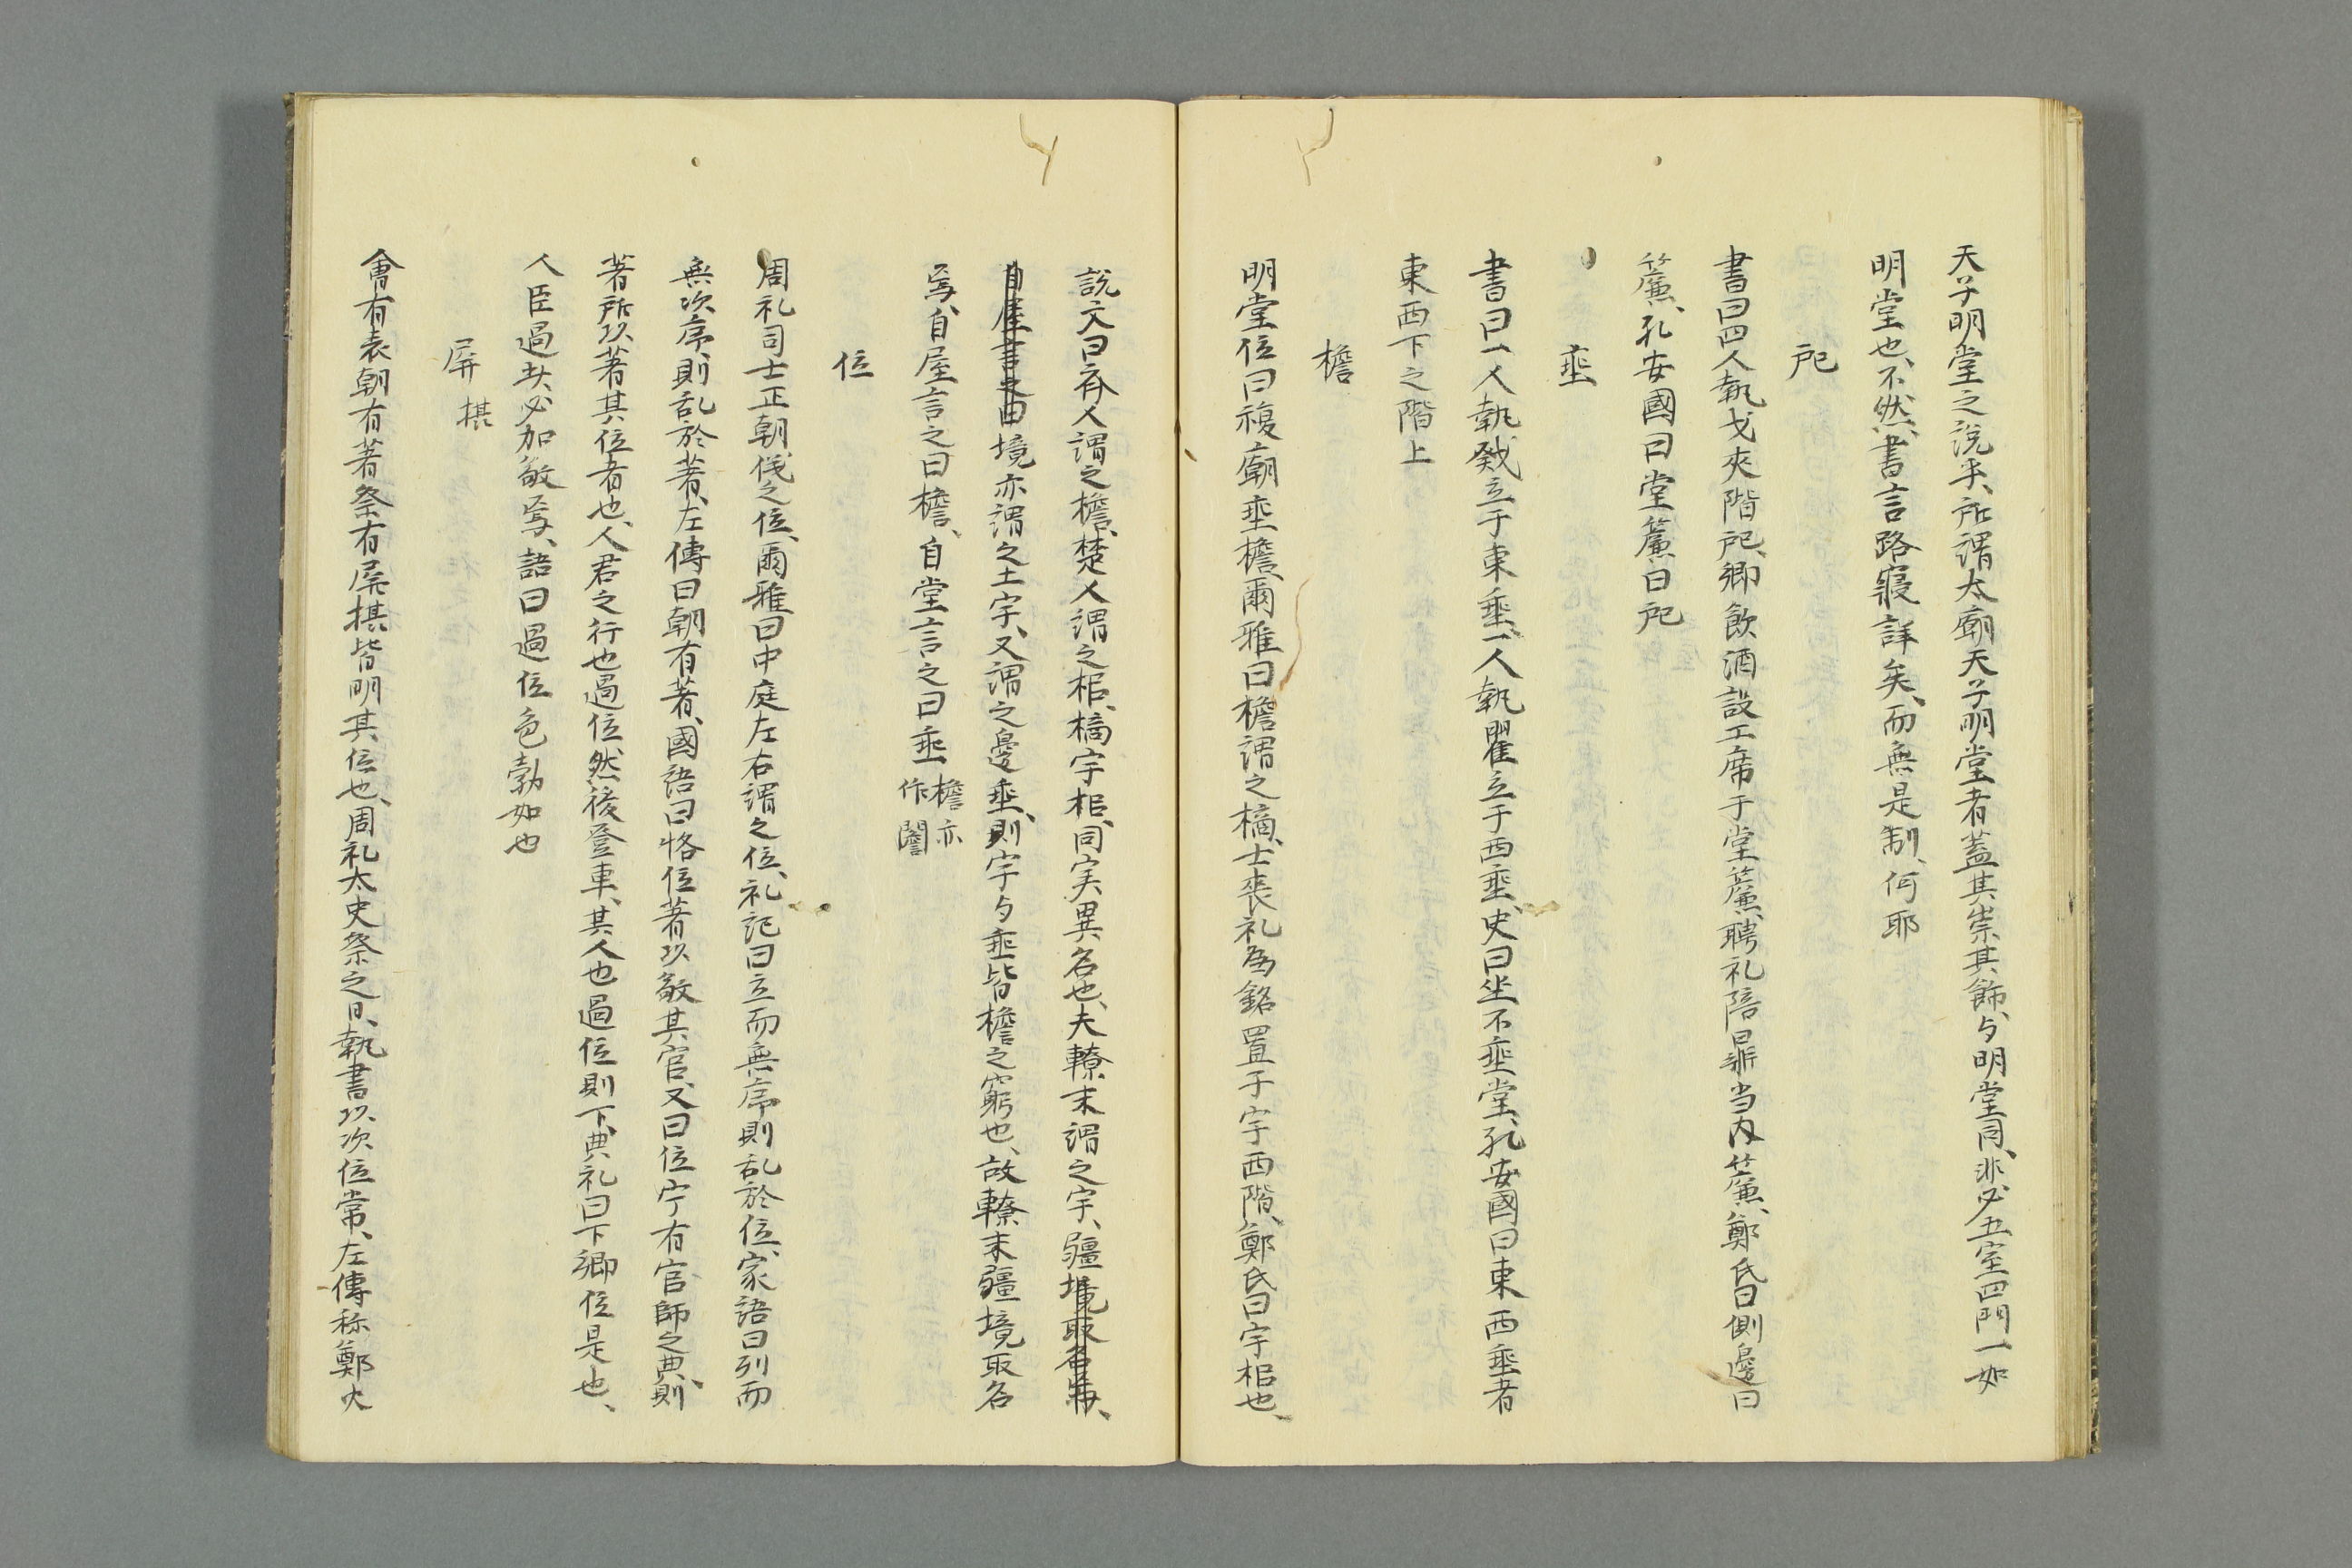 天子明堂之説乎、所謂太廟天子明堂者蓋其崇其飾、与明堂同、非必五室四門一如
明堂也、不然、書言路寢詳矣、而無是制、何耶
戺
書曰四人執戈夾階戺、郷飲酒設工席于堂簾、聘礼陪鼎当内簾、鄭氏曰側邊曰
簾、孔安國曰堂簾曰戺
垂
書曰一人執戣立于東垂、一人執瞿立于西垂、史曰坐不垂堂、孔安國曰東西垂者
東西下之階上
檐
明堂位曰複廟垂檐、爾雅曰檐謂之樀、士喪礼為銘置于宇西階、鄭氏曰宇梠也、
説文曰齊人謂之檐、楚人謂之梠、樀宇梠、同実異名也、夫轑末謂之宇、疆境取名焉、
自屋言之曰境亦謂之土宇、又謂之邊垂、則宇与垂皆檐之窮也、故轑末疆境取名
焉、自屋言之曰檐、自堂言之曰垂 檐亦作闇
位
周礼司士正朝儀之位、爾雅曰中庭左右謂之位、礼記曰立而無序則乱於位、家語曰列而
無次序、則乱於著、左傳曰朝有著、國語曰恪位著以敬其官、又曰位宁有官師之典、則
著所以著其位者也、人君之行也過位、然後登車、其人也過位則下、典礼曰下卿位是也、
人臣過其必加敬焉、語曰過位色勃如也
屏棋
會有表朝有著祭有屏棋皆明其位也、周礼太史祭之日、執書以次位常、左傳称鄭火